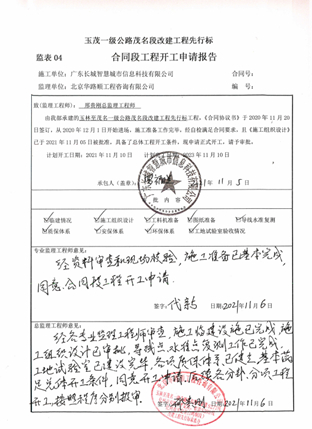 玉茂一级公路茂名段改建工程先行标
监表 04
合同段工程开工申请报告
施工单位：广东长城智慧城市信息科技有限公司
合同号：
监理单位：北京华路顺工程咨询有限公司
编号：
致(监理工程师)：邢贵刚总监理工程师
由我部承建的玉林至茂名一级公路茂名段改建工程先行标工程，《合同协议书》于2020年11月20
签订，从2020年12月1日开始进场，施工准备工作完毕，经自检满足合同要求，且《施工组织设计》
已于2021年11月05日被批准，具备了总体工程开工条件，现申请正式开工，请予审批。
计划开工日期：2021年11月10日
2023年11月10日
承包人(盖章)：
11月5日
施工组织设计
工料机准备
图纸准备
导线水准复测
质保体系
安保体系
环保体系
工地试验室验收情况
专业监理工程师意见：
经资料审查和现场校验，施工准备已基本完成，
同意合同段工程开工申请。
签字：
日期 2021年11月6日
总监理工程师意见：
经各专业监理工程师审查，施工临建设施已完成，施
工组织设计已审批，导线点水准点复测工作已完成，
工地试验室已建设完毕，各项质保体系已建立，基本满
足总体开工条件，同意开工申请，
开工按照程序分别报审
日期 2021年11月6日